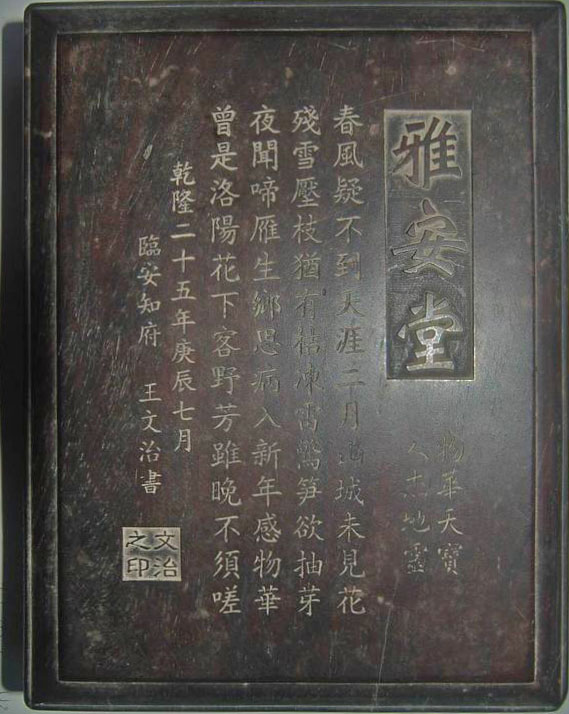 雅安堂
物華天寶
人杰地靈
春風疑不到天涯二月城未見花
殘雪壓枝猶有桔凍雷驚笋欲抽芽
夜聞啼雁生鄉思病入新年感物華
曾是洛陽花下客野芳雖晚不須嗟
乾隆二十五年庚辰七月
臨安知府 王文治書
文治
之印